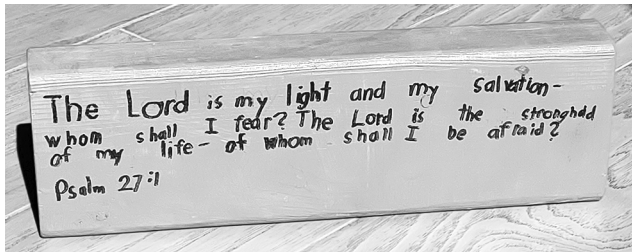 The Lord is my light and my salvation-
whom shall I fear? The Lord is the stronghold
of my life- of whom shall I be afraid?
Psalm 27:1